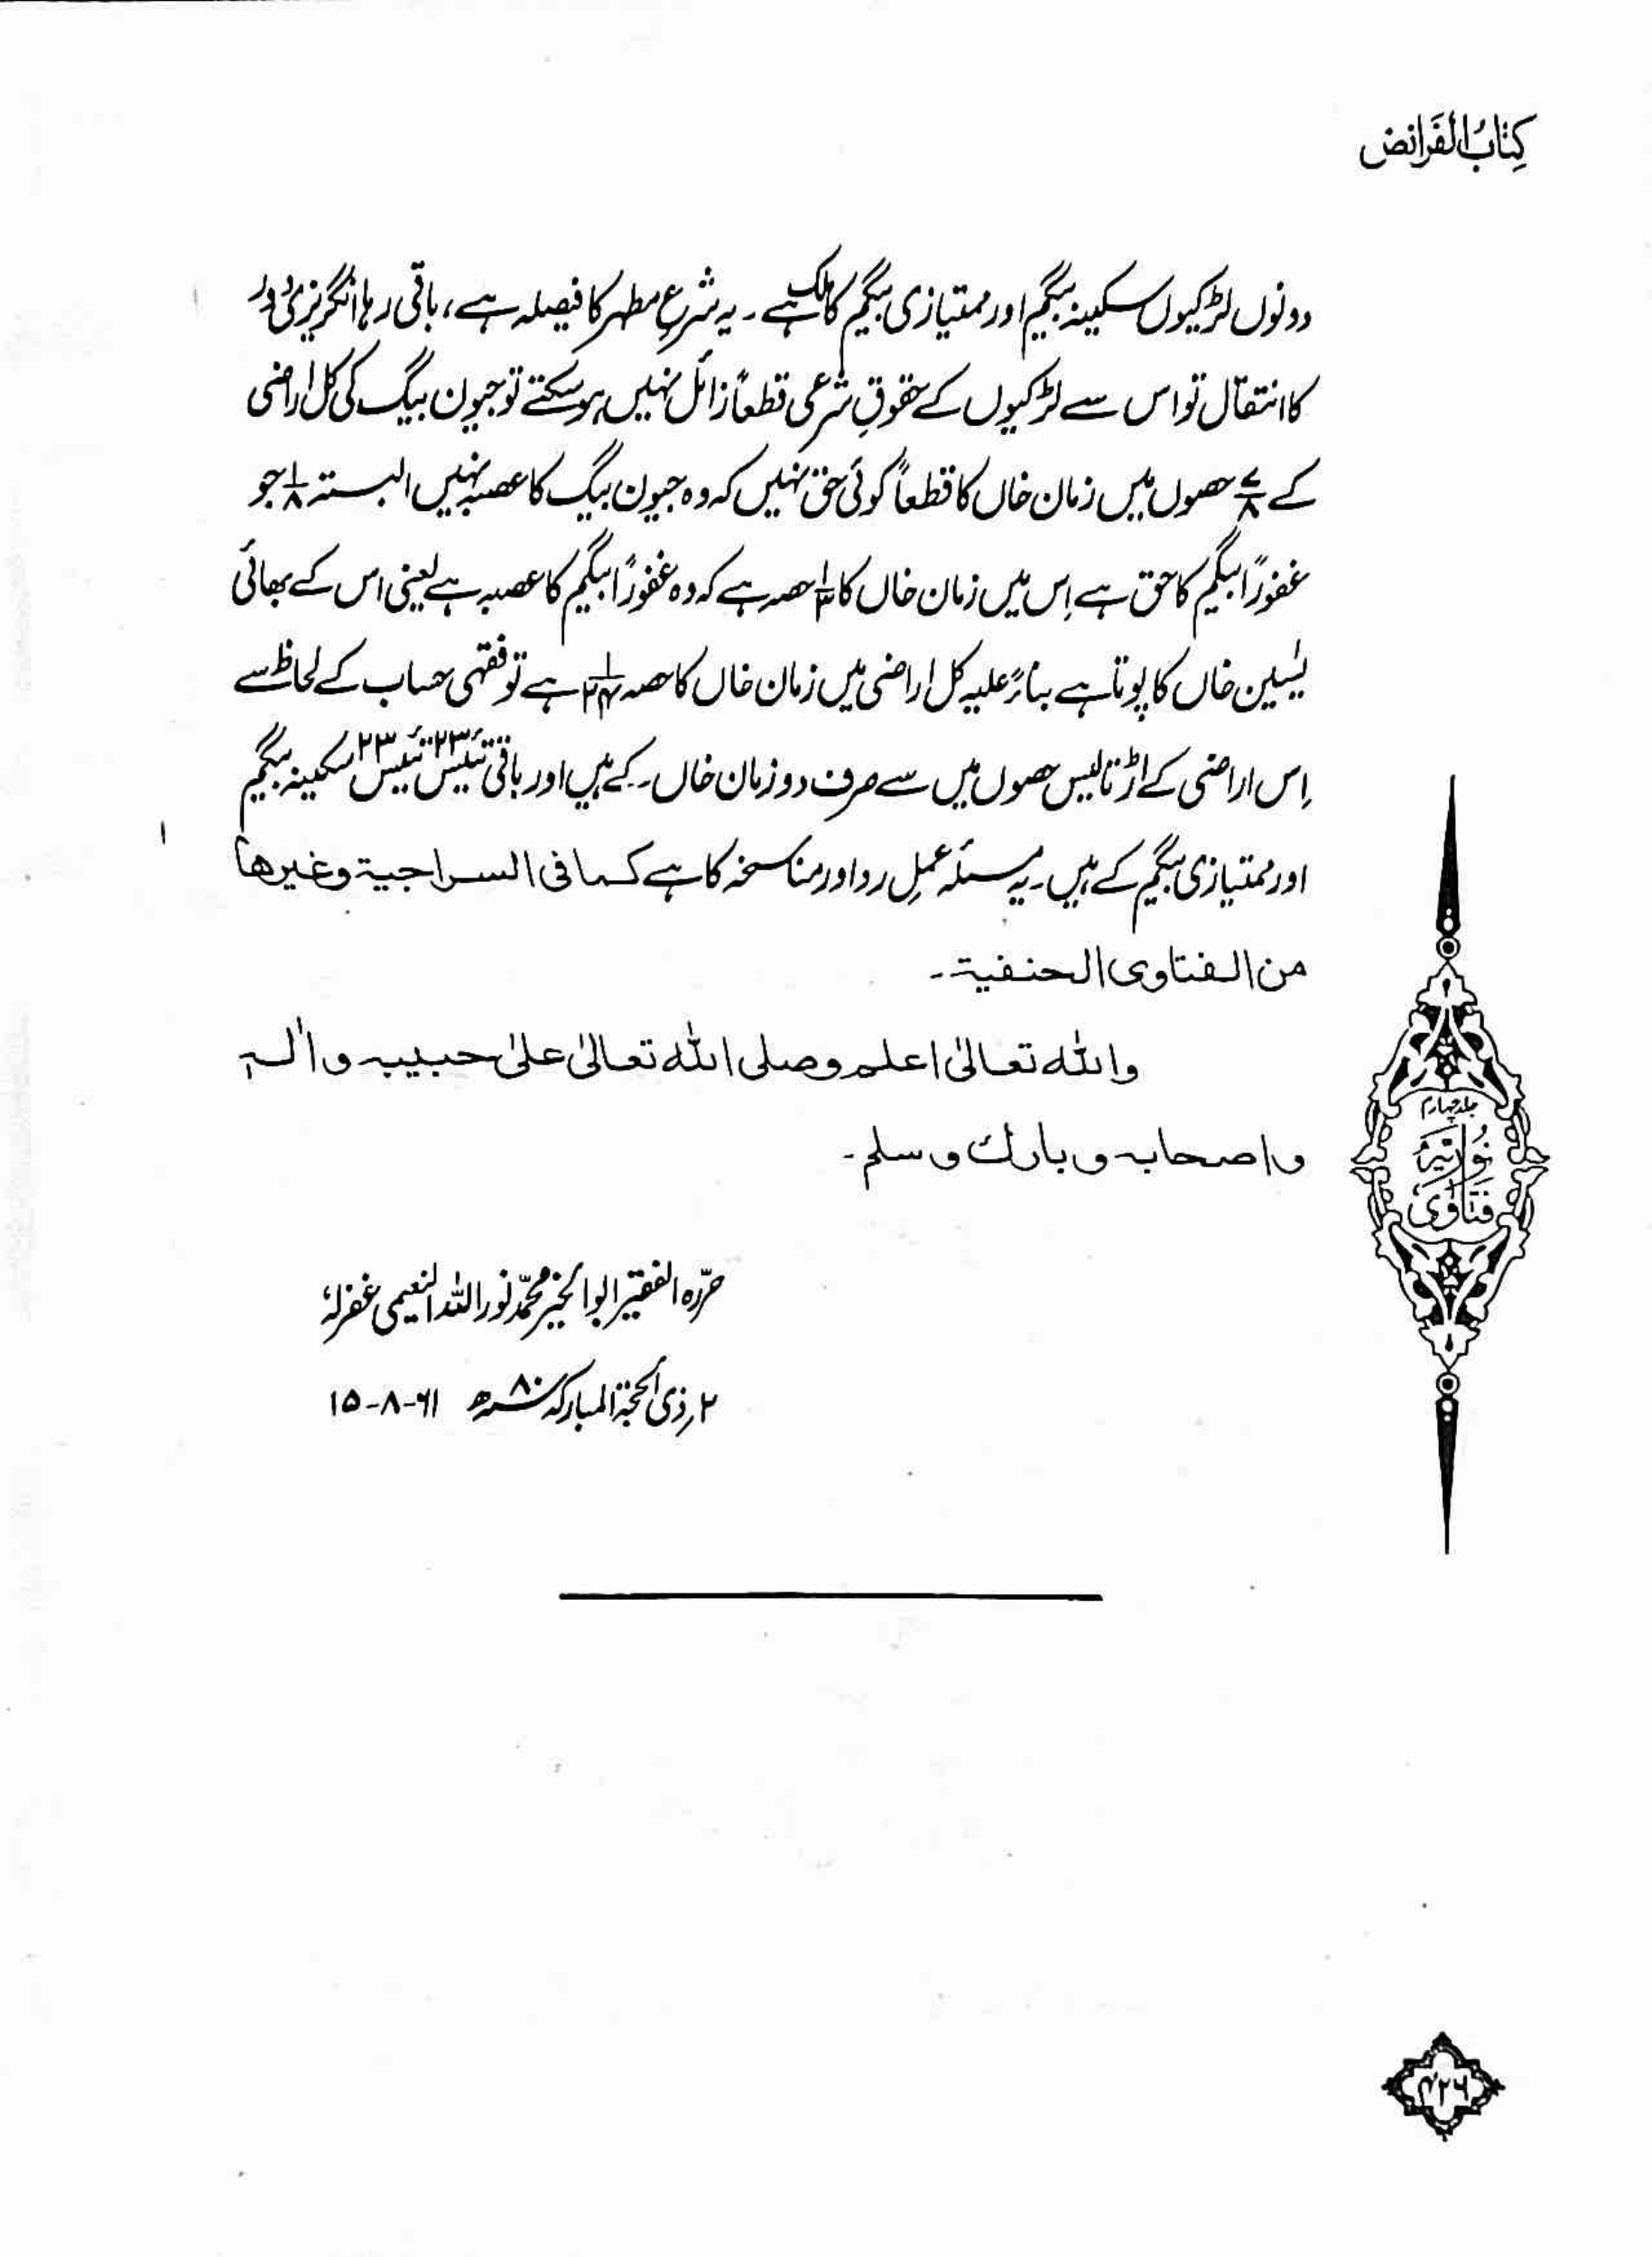 کِتَابُ الفَرَائض
دونوں لڑکیوں سکینہ بیگم اور ممتیازی بیگم کا ملک ہے۔ یہ شرعِ مطہر کا فیصلہ ہے، باقی رہا انگریزی دَور
کا انتقال تو اس سے لڑکیوں کے حقوقِ شرعی قطعاً زائل نہیں ہو سکتے تو جیون بیگ کی کل اراضی
کے ۷/۸ حصوں میں زمان خاں کا قطعاً کوئی حق نہیں کہ وہ جیون بیگ کا عصبہ نہیں البتہ ۱/۸ جو
غفوراً بیگم کا حق ہے اِس میں زمان خاں کا ۱/۳ حصہ ہے کہ وہ غفوراً بیگم کا عصبہ ہے یعنی اس کے بھائی
یٰسین خاں کا پوتا ہے بناءً علیہ کل اراضی میں زمان خاں کا حصہ ۱/۲۴ ہے تو فقہی حساب کے لحاظ سے
اِس اراضی کے اڑتالیس حصوں میں سے صرف دو زمان خاں کے ہیں اور باقی تئیس۲۳ تئیس۲۳ سکینہ بیگم
اور ممتیازی بیگم کے ہیں۔ یہ مسئلہ عملِ رد اور مناسخہ کا ہے کما فی السراجیۃ وغیرھا
من الفتاوی الحنفیۃ۔
واللہ تعالیٰ اعلم وصلی اللہ تعالیٰ علیٰ حبیبہ واٰلہ
واصحابہ وبارک وسلم۔
حرّرہ الفقیر ابوالخیر محمّد نور اللہ النعیمی غفرلہٗ
۲؍ذی الحجۃ المبارکہ سنہ ۸۰ھ ۶۱-۸-۱۵
جلد چہارم
نُوْرِیَّہ
فَتَاوٰی
۴۲۶